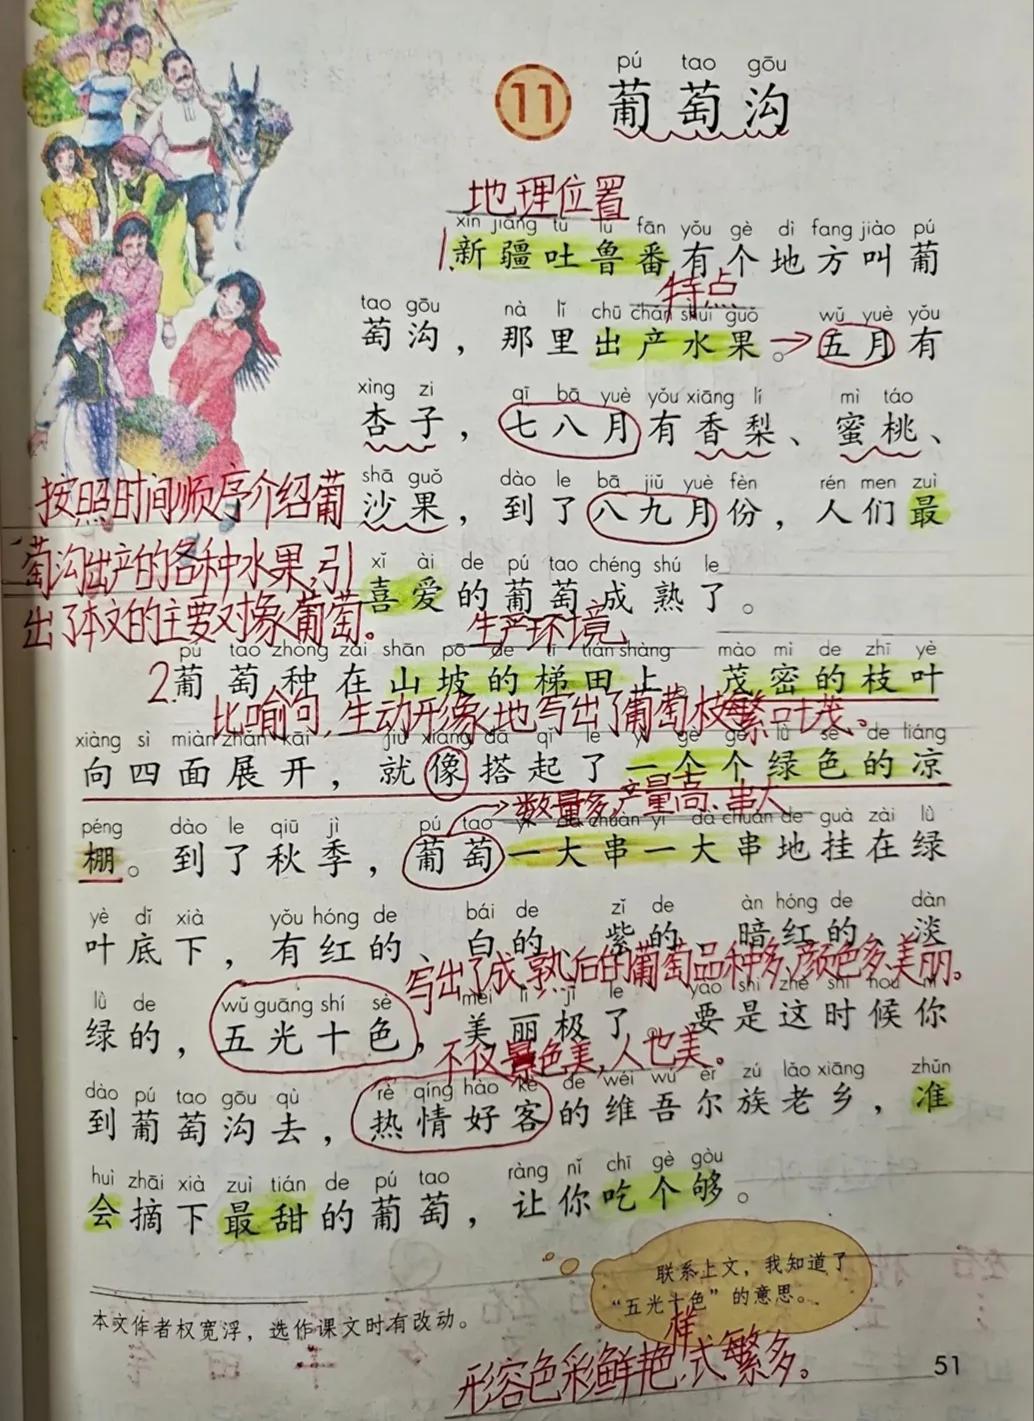 pú tao gōu
11 葡萄沟
地理位置
xīn jiāng tǔ lǔ fān yǒu gè dì fang jiào pú
1.新疆吐鲁番有个地方叫葡
特点
tao gōu nà lǐ chū chǎn shuǐ guǒ wǔ yuè yǒu
萄沟，那里出产水果。→五月有
xìng zi qī bā yuè yǒu xiāng lí mì táo
杏子，七八月有香梨、蜜桃、
shā guǒ dào le bā jiǔ yuè fèn rén men zuì
沙果，到了八九月份，人们最
按照时间顺序介绍葡
萄沟出产的各种水果,引
出了本文的主要对象:葡萄。
xǐ ài de pú tao chéng shú le
喜爱的葡萄成熟了。
生产环境
pú tao zhòng zài shān pō de tī tián shàng mào mì de zhī yè
2.葡萄种在山坡的梯田上。茂密的枝叶
比喻句,生动形象地写出了葡萄枝繁叶茂。
xiàng sì miàn zhǎn kāi jiù xiàng dā qǐ le yí gè gè lǜ sè de liáng
向四面展开，就像搭起了一个个绿色的凉
数量多,产量高、串大
péng dào le qiū jì pú tao yí dà chuàn yí dà chuàn de guà zài lǜ
棚。到了秋季，葡萄一大串一大串地挂在绿
yè dǐ xià yǒu hóng de bái de zǐ de àn hóng de dàn
叶底下，有红的、白的、紫的、暗红的、淡
写出了成熟后的葡萄品种多,颜色多,美丽。
lǜ de wǔ guāng shí sè měi lì jí le yào shi zhè shí hou nǐ
绿的，五光十色，美丽极了。要是这时候你
不仅景色美,人也美。
dào pú tao gōu qù rè qíng hào kè de wéi wú ěr zú lǎo xiāng zhǔn
到葡萄沟去，热情好客的维吾尔族老乡，准
huì zhāi xià zuì tián de pú tao ràng nǐ chī gè gòu
会摘下最甜的葡萄，让你吃个够。
联系上文，我知道了
“五光十色”的意思。
本文作者权宽浮，选作课文时有改动。
形容色彩鲜艳,样式繁多。
51